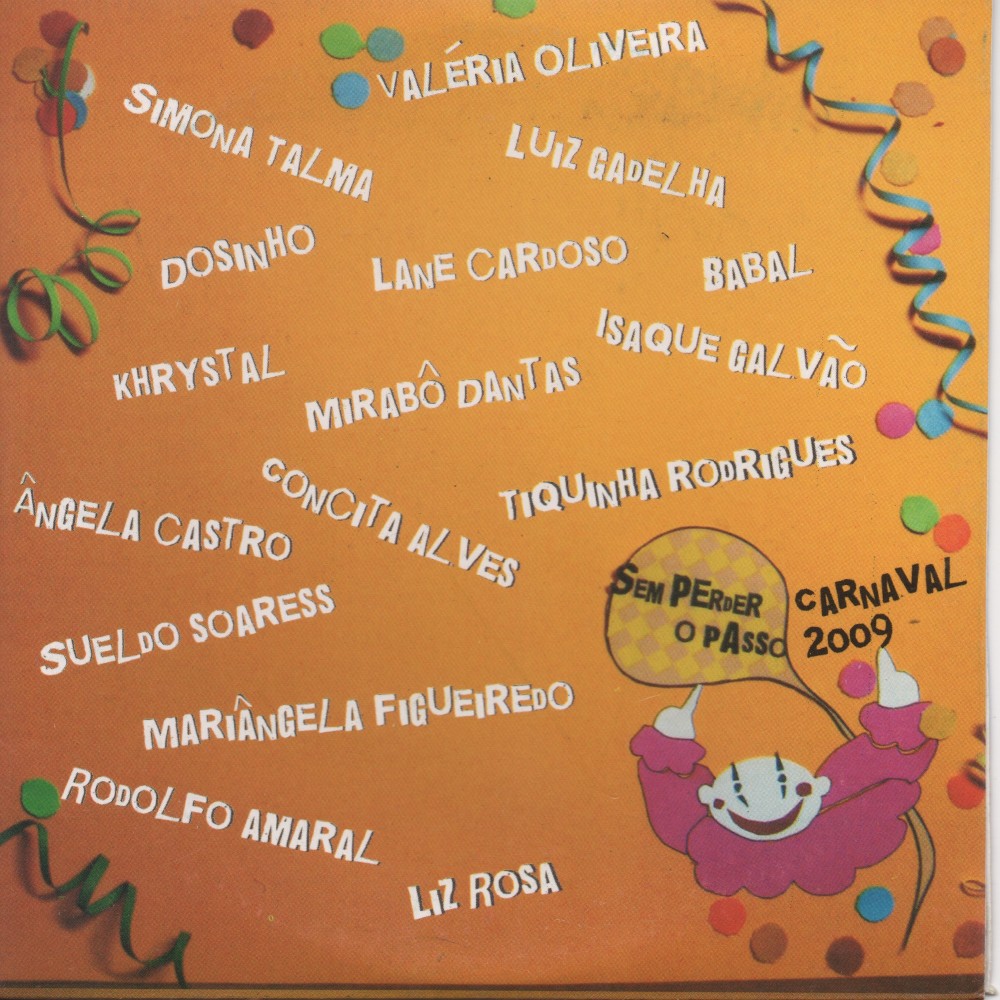 VALÉRIA OLIVEIRA
SIMONA TALMA
LUIZ GADELHA
DOSINHO
LANE CARDOSO
BABAL
ISAQUE GALVÃO
KHRYSTAL
MIRABÔ DANTAS
CONCITA ALVES
TIQUINHA RODRIGUES
ÂNGELA CASTRO
SEM PERDER
O PASSO
CARNAVAL
2009
SUELDO SOARESS
MARIÂNGELA FIGUEIREDO
RODOLFO AMARAL
LIZ ROSA